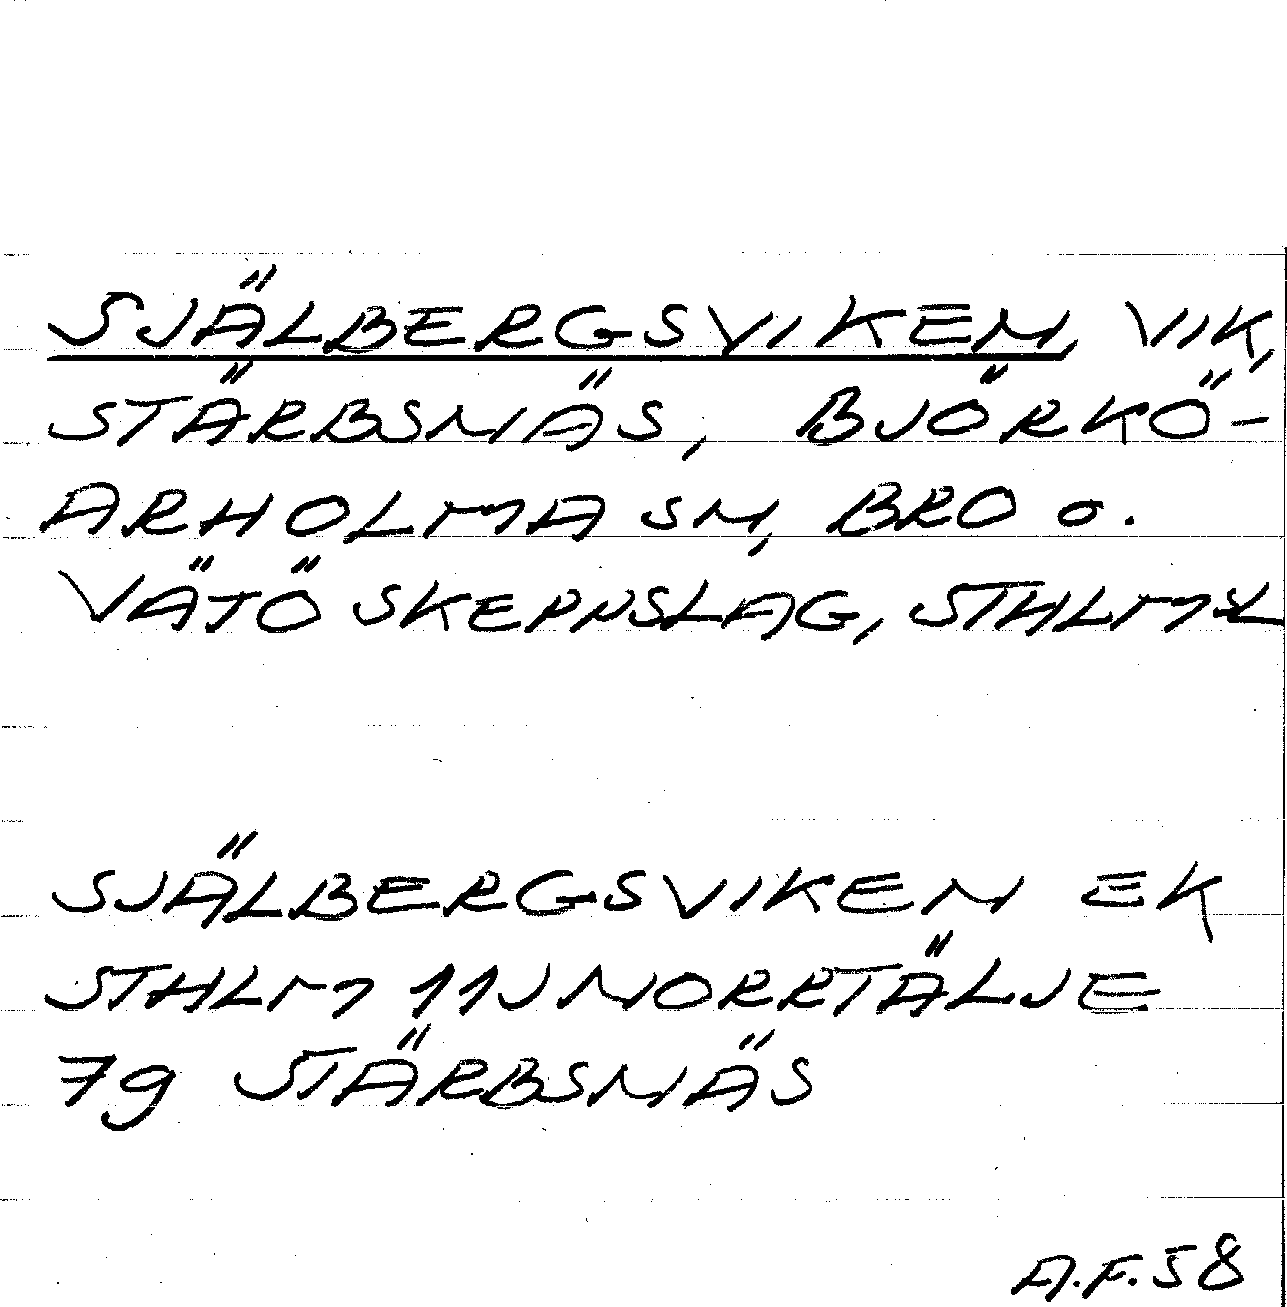 SJÄLBERGSVIKEN, VIK,
STÄRBSNÄS, BJÖRKÖ-
ARHOLMA SN, BRO o.
VÄTÖ SKEPPSLAG, STHLMS L
SJÄLBERGSVIKEN EK
STHLM 11J NORRTÄLJE
7g STÄRBSNÄS
A.F. 58